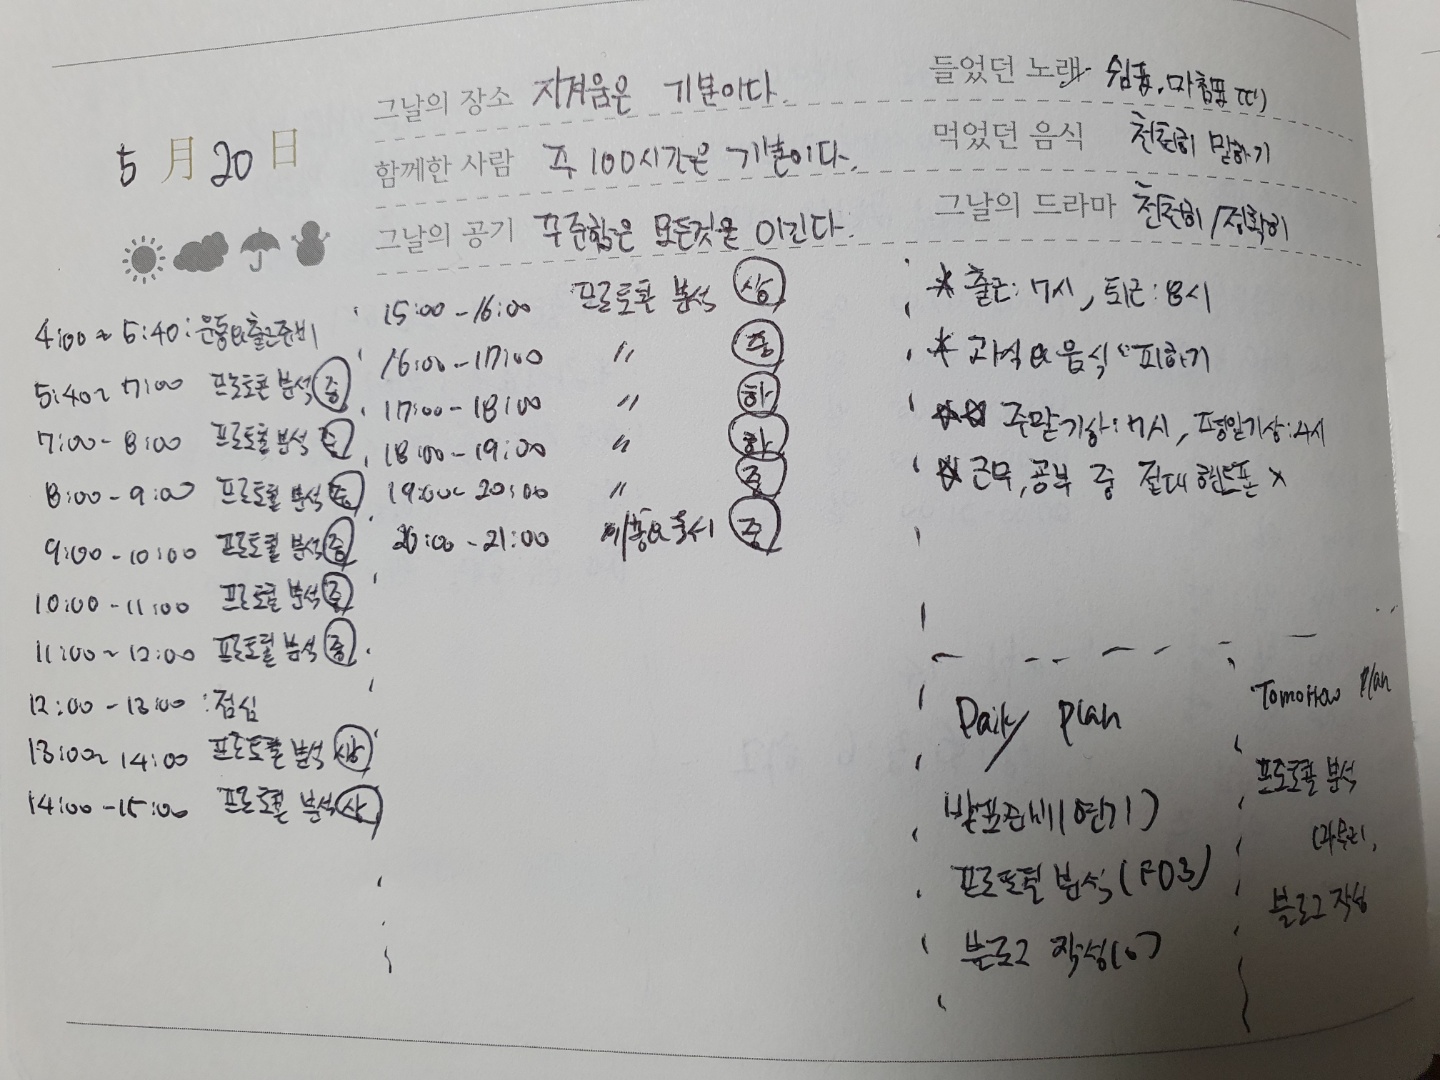 5 月 20 日
그날의 장소 지겨움은 기본이다.
함께한 사람 주 100시간은 기본이다.
그날의 공기 꾸준함은 모든것을 이긴다.
들었던 노래 쉼표, 마침표 띠)
먹었던 음식 천천히 말하기
그날의 드라마 천천히/정확히
4:00 ~ 5:40 : 운동&출근준비
5:40 ~ 7:00 프로토콜 분석 중
7:00 - 8:00 프로토콜 분석 중
8:00 - 9:00 프로토콜 분석 중
9:00 - 10:00 프로토콜 분석 중
10:00 - 11:00 프로토콜 분석 중
11:00 ~ 12:00 프로토콜 분석 중
12:00 - 13:00 : 점심
13:00 ~ 14:00 프로토콜 분석 상
14:00 - 15:00 프로토콜 분석 상
15:00 - 16:00 프로토콜 분석 상
16:00 - 17:00 〃 중
17:00 - 18:00 〃 하
18:00 - 19:00 〃 하
19:00 ~ 20:00 〃 중
20:00 - 21:00 중
* 출근: 7시, 퇴근: 8시
* 과식&음식 피하기
** 주말기상: 7시, 평일기상: 4시
* 근무, 공부 중 절대 핸드폰 x
Daily plan
발표준비(연기)
프로토콜 분석(F03)
블로그 작성(o)
Tomorrow plan
프로토콜 분석
(마무리)
블로그 작성